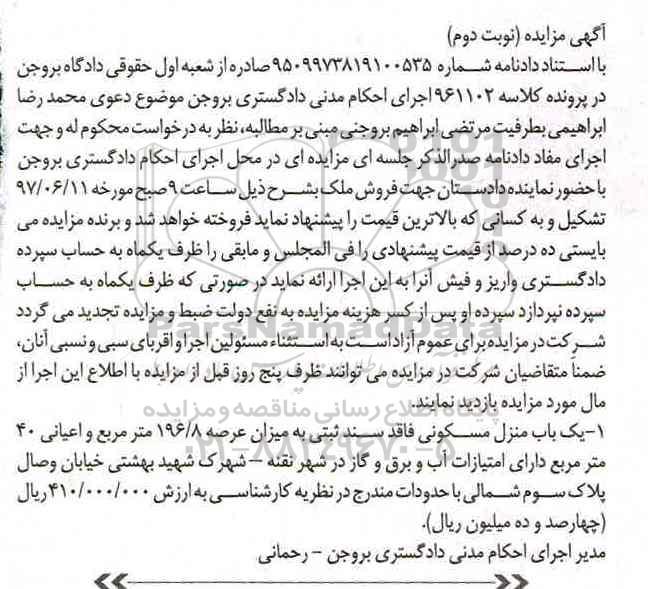 آگهی مزایده (نوبت دوم)
با استناد دادنامه شماره ۹۵۰۹۹۷۳۸۱۹۱۰۰۵۳۵ صادره از شعبه اول حقوقی دادگاه بروجن
در پرونده کلاسه ۹۶۱۱۰۲ اجرای احکام مدنی دادگستری بروجن موضوع دعوی محمد رضا
ابراهیمی بطرفیت مرتضی ابراهیم بروجنی مبنی بر مطالبه، نظر به درخواست محکوم له و جهت
اجرای مفاد دادنامه صدرالذکر جلسه ای مزایده ای در محل اجرای احکام دادگستری بروجن
با حضور نماینده دادستان جهت فروش ملک بشرح ذیل ساعت ۹ صبح مورخه ۹۷/۰۶/۱۱
تشکیل و به کسانی که بالاترین قیمت را پیشنهاد نماید فروخته خواهد شد و برنده مزایده می
بایستی ده درصد از قیمت پیشنهادی را فی المجلس و مابقی را ظرف یکماه به حساب سپرده
دادگستری واریز و فیش آنرا به این اجرا ارائه نماید در صورتی که ظرف یکماه به حساب
سپرده نپردازد سپرده او پس از کسر هزینه مزایده به نفع دولت ضبط و مزایده تجدید می گردد
شرکت در مزایده برای عموم آزاد است به استثناء مسئولین اجرا و اقربای سببی و نسبی آنان،
ضمناً متقاضیان شرکت در مزایده می توانند ظرف پنج روز قبل از مزایده با اطلاع این اجرا از
مال مورد مزایده بازدید نمایند.
۱-یک باب منزل مسکونی فاقد سند ثبتی به میزان عرصه ۱۹۶/۸ متر مربع و اعیانی ۴۰
متر مربع دارای امتیازات آب و برق و گاز در شهر نقنه – شهرک شهید بهشتی خیابان وصال
پلاک سوم شمالی با حدودات مندرج در نظریه کارشناسی به ارزش ۴۱۰/۰۰۰/۰۰۰ ریال
(چهارصد و ده میلیون ریال).
مدیر اجرای احکام مدنی دادگستری بروجن – رحمانی
ParsNamadData
پایگاه اطلاع رسانی مناقصه و مزایده
۰۲۱-۸۸۳۴۹۶۷۰-۵